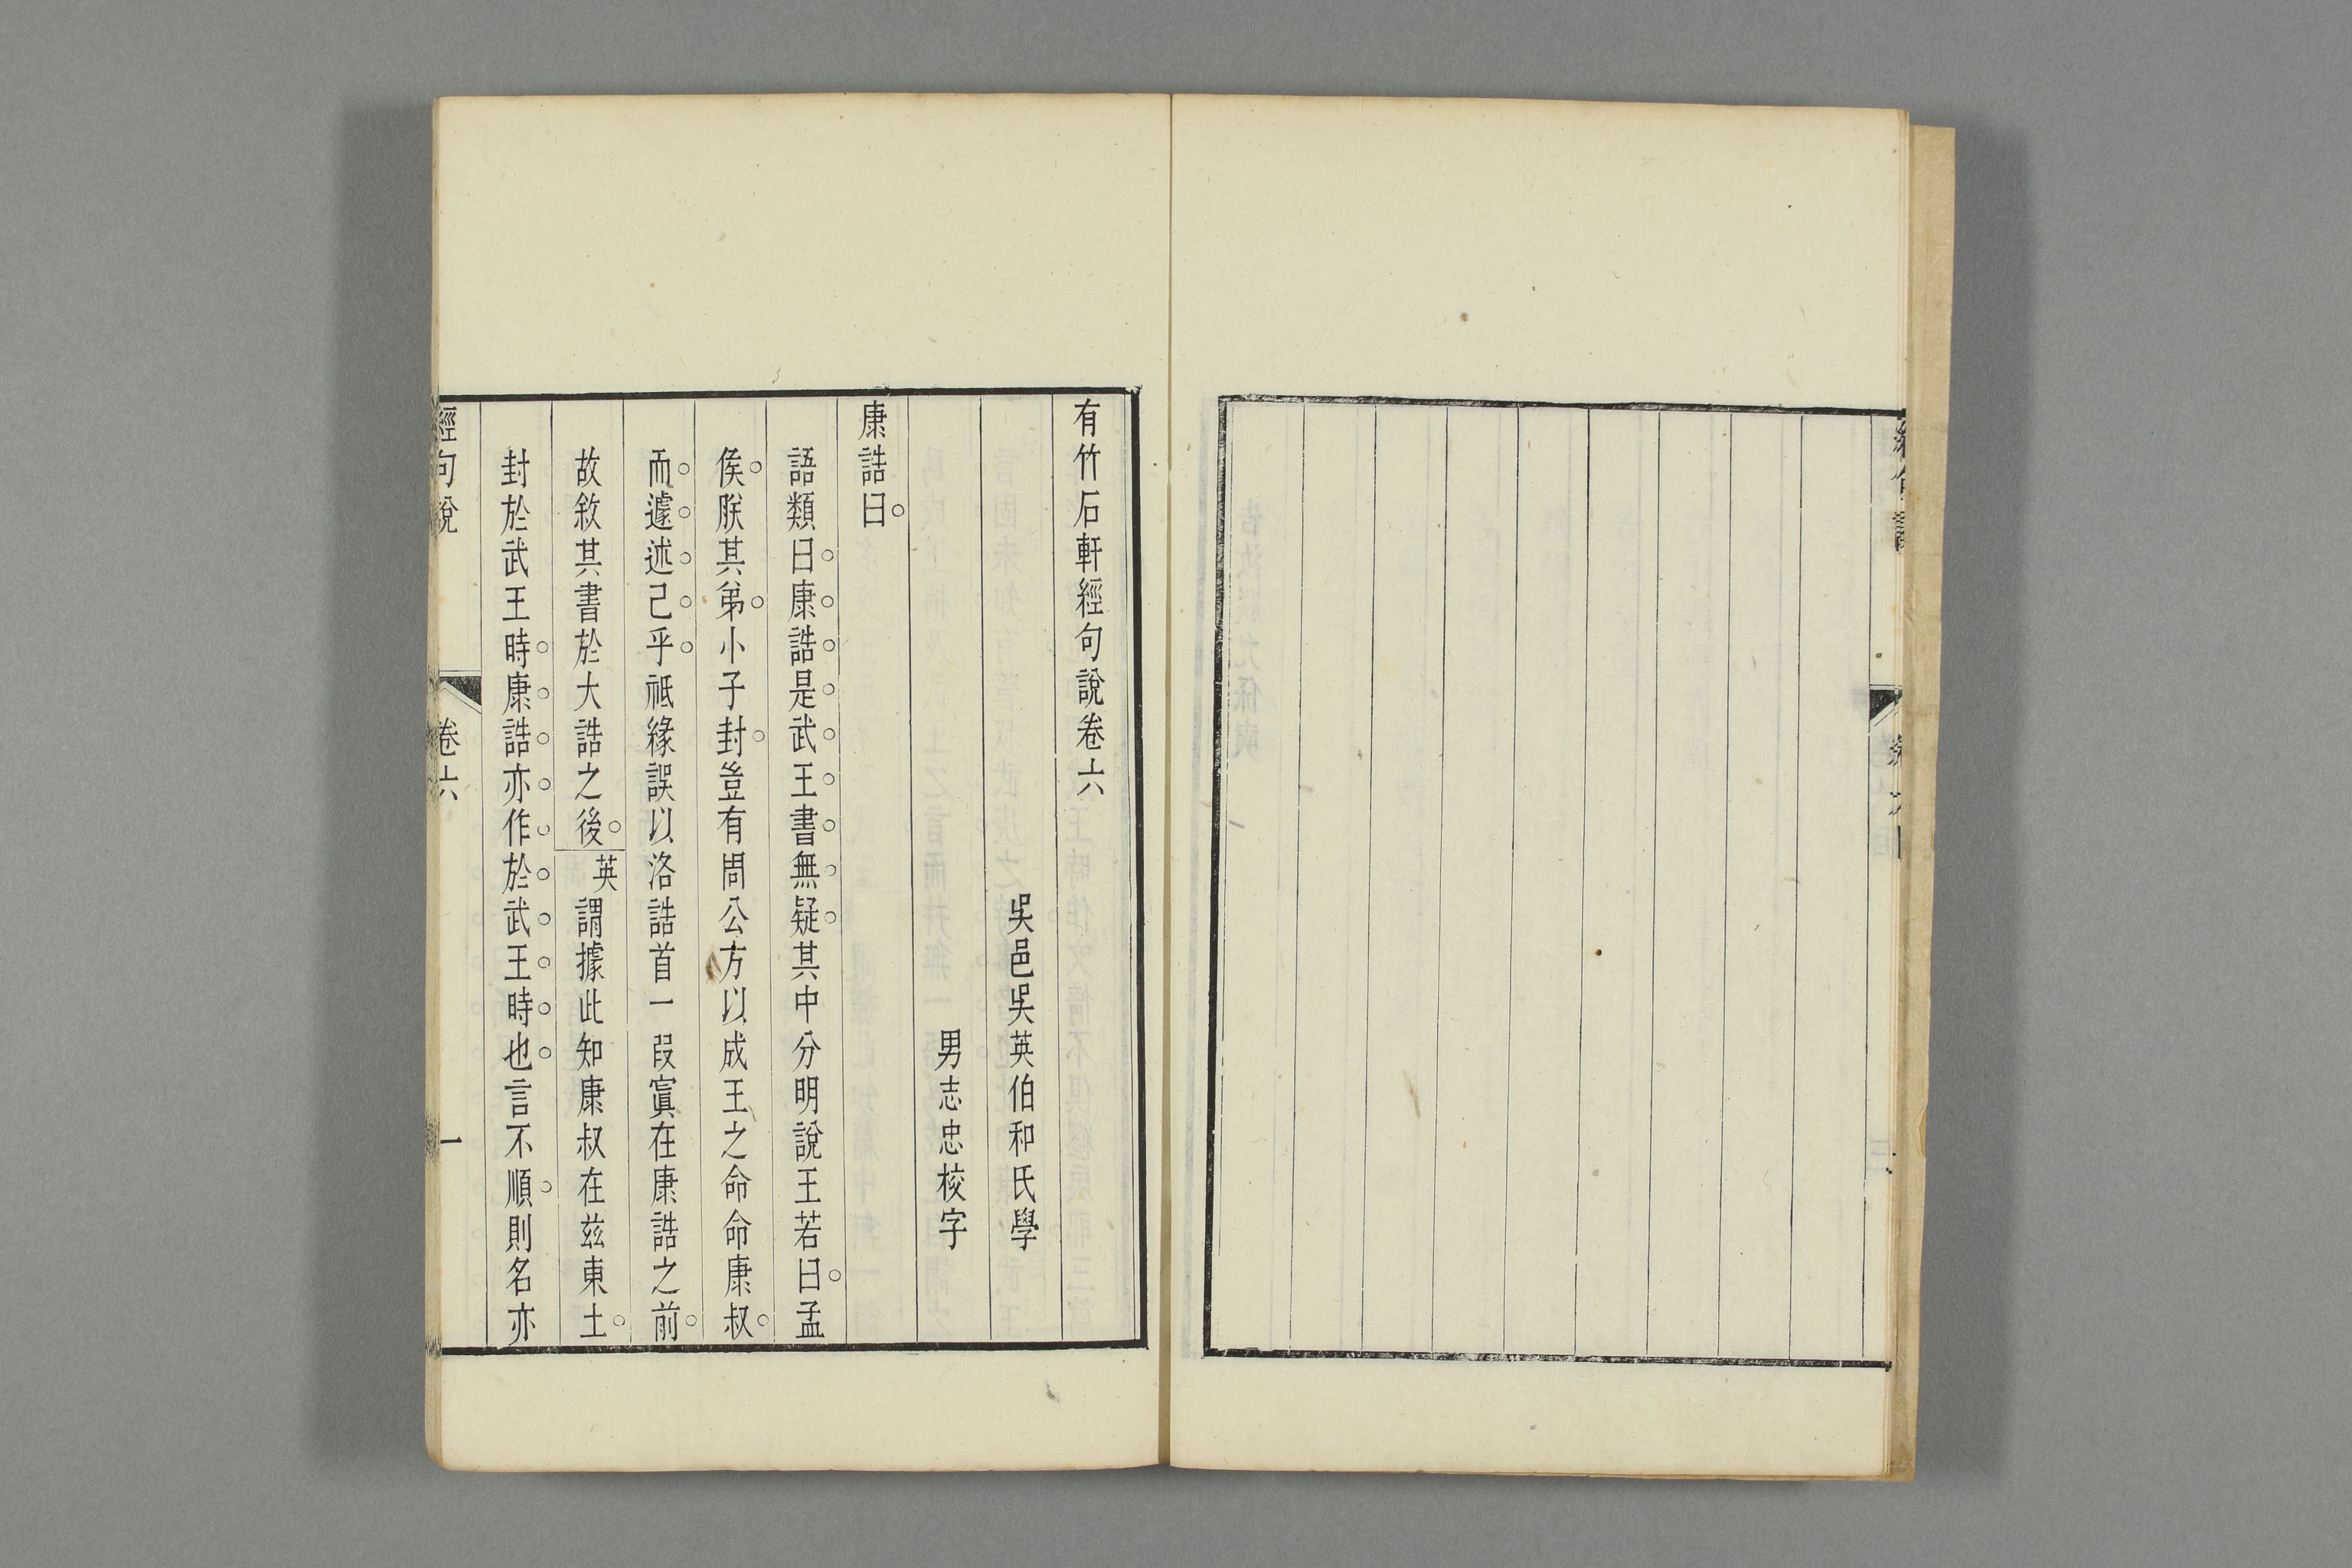 有竹石軒經句說卷六
吳邑吳英伯和氏學
男志忠校字
康誥曰
語類曰康誥是武王書無疑其中分明說王若曰孟
侯朕其弟小子封豈有周公方以成王之命命康叔
而遽述己乎祗緣誤以洛誥首一段寘在康誥之前
故敘其書於大誥之後英謂據此知康叔在兹東土
封於武王時康誥亦作於武王時也言不順則名亦
經句說 卷六 一